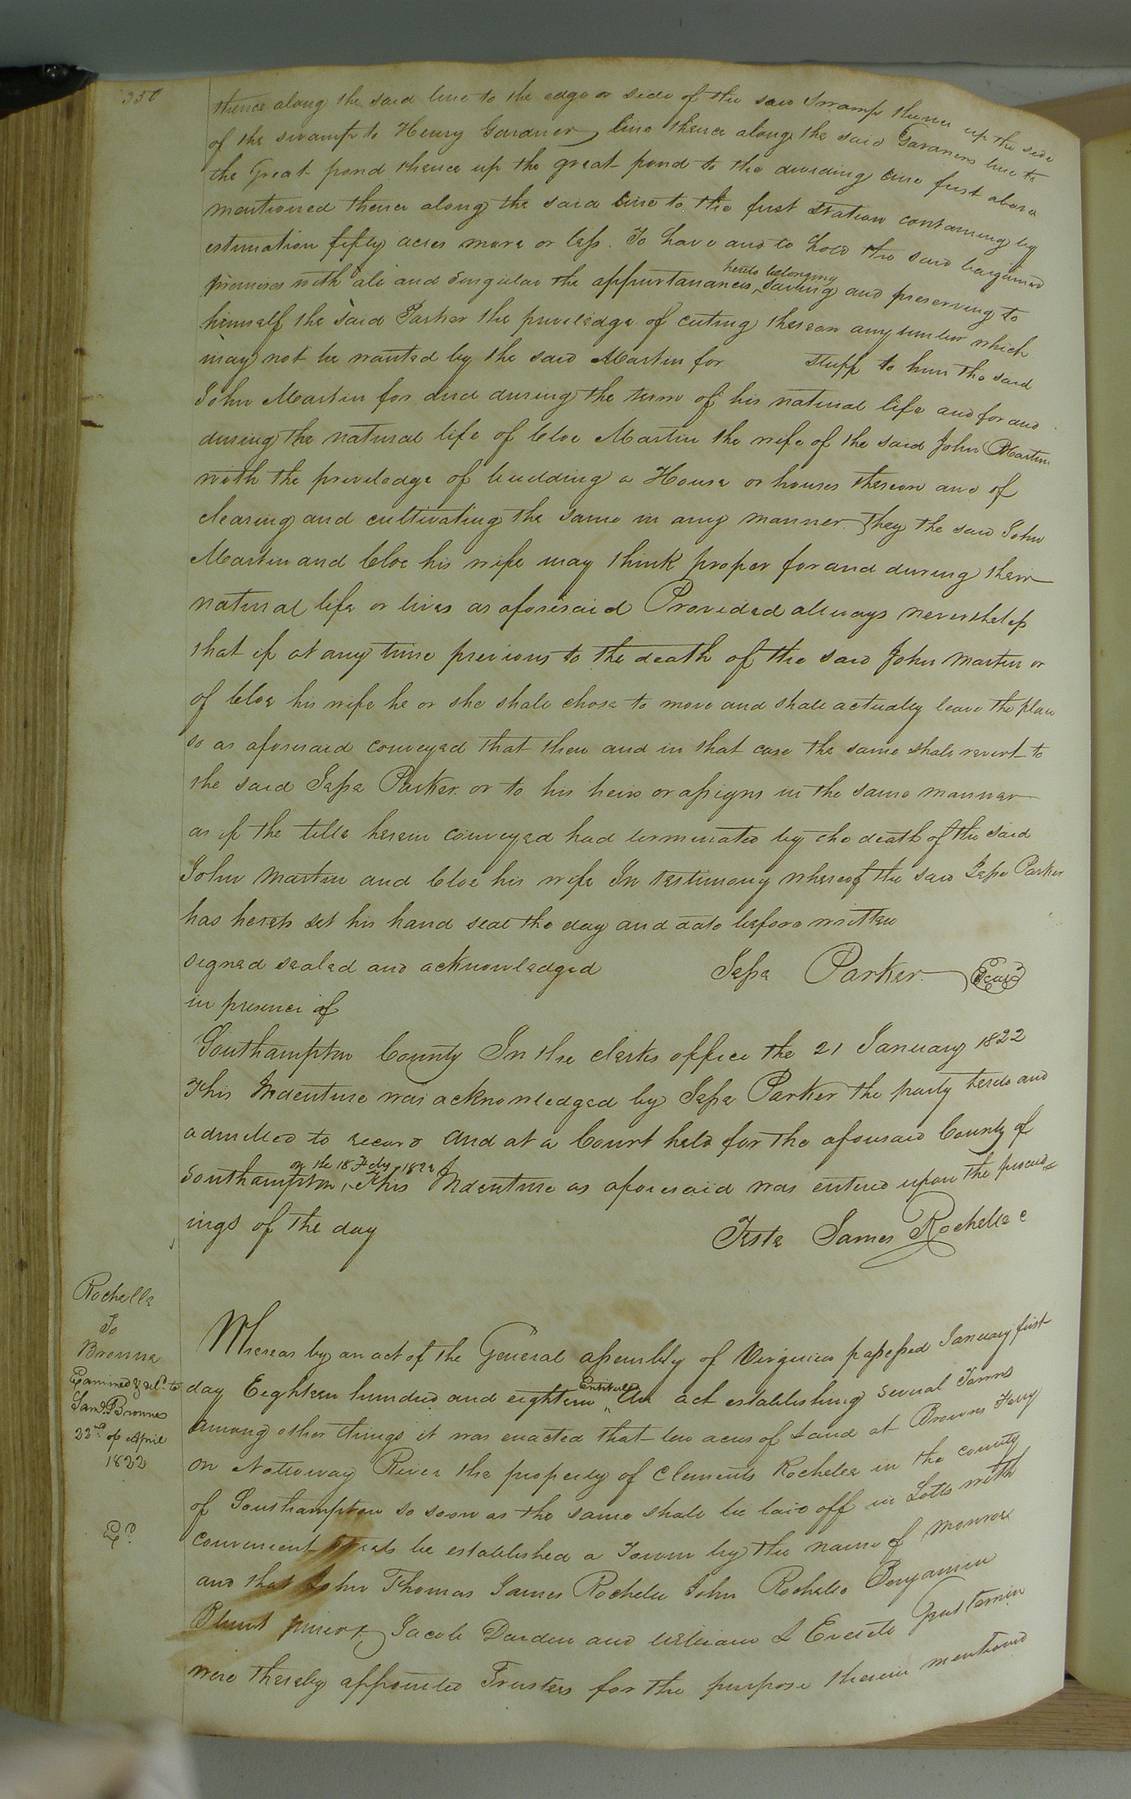 350
thence along the said line to the edge or side of the said Swamp thence up the side
of the swamp to Henry Gardner line thence along the said Garaners line to
the Great pond thence up the great pond to the dividing line first above
mentioned thence along the said line to the first station containing by
estimation fifty acres more or less. To have and to hold the said bargained
premises with all and singular the appurtanances, hereto belonging saving and preserving to
himself the said Parker the priviledge of cuting thereon any timber which
may not be wanted by the said Martin for stuff to him the said
John Martin for and during the term of his natural life and for and
during the natural life of Cloe Martin the wife of the said John Martin
with the priviledge of building a House or houses thereon and of
clearing and cultivating the same in any manner they the said John
Martin and Cloe his wife may think proper for and during their
natural life or lives as aforesaid Provided always nevertheless
that if at any time previous to the death of the said John Martin or
of Cloe his wife he or she shall chose to move and shall actually leave the place
so as aforesaid conveyed that then and in that case the same shall revert to
the said Jesse Parker or to his heirs or assigns in the same manner
as if the title herein conveyed had terminated by the death of the said
John Martin and Cloe his wife In testimony whereof the said Jesse Parker
has hereto set his hand seal the day and date before written
signed sealed and acknowledged Jesse Parker Seal
in presence of
Southampton County In the clerks office the 21 January 1822
This Indenture was acknowledged by Jesse Parker the party hereto and
admitted to record and at a Court held for the aforesaid County of
Southampton, on the 18 Feby 1822 This Indenture as aforesaid was entered upon the proceed=
ings of the day Teste James Rochelle c
Rochelle
To
Browne
Examined & del'd to
Sam'l Browne
22nd of April
1822
Whereas by an act of the General assembly of Virginia passed January first
day Eighteen hundred and eighteen Entitled An act establishing several Towns
among other things it was enacted that ten acres of Land at Browns Ferry
on Nottoway River the property of Clements Rochelle in the county
of Southampton so soon as the same shall be laid off in Lotts with
convenient Streets be established a Town by the name of Monroe
and that John Thomas James Rochelle John Rochelle Benjamin
Blunt Jacob Darden and William Gentlemen
were thereby appointed Trustees for the purpose therein mentioned